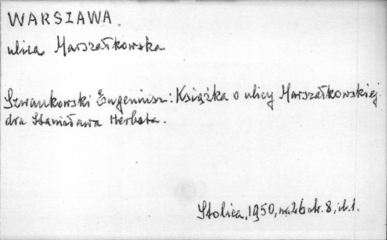 WARSZAWA.
ulica Marszałkowska
Szwankowski Eugeniusz: Książka o ulicy Marszałkowskiej
dra Stanisława Herbsta.
Stolica, 1950, nr 26 str. 8, il. 1.